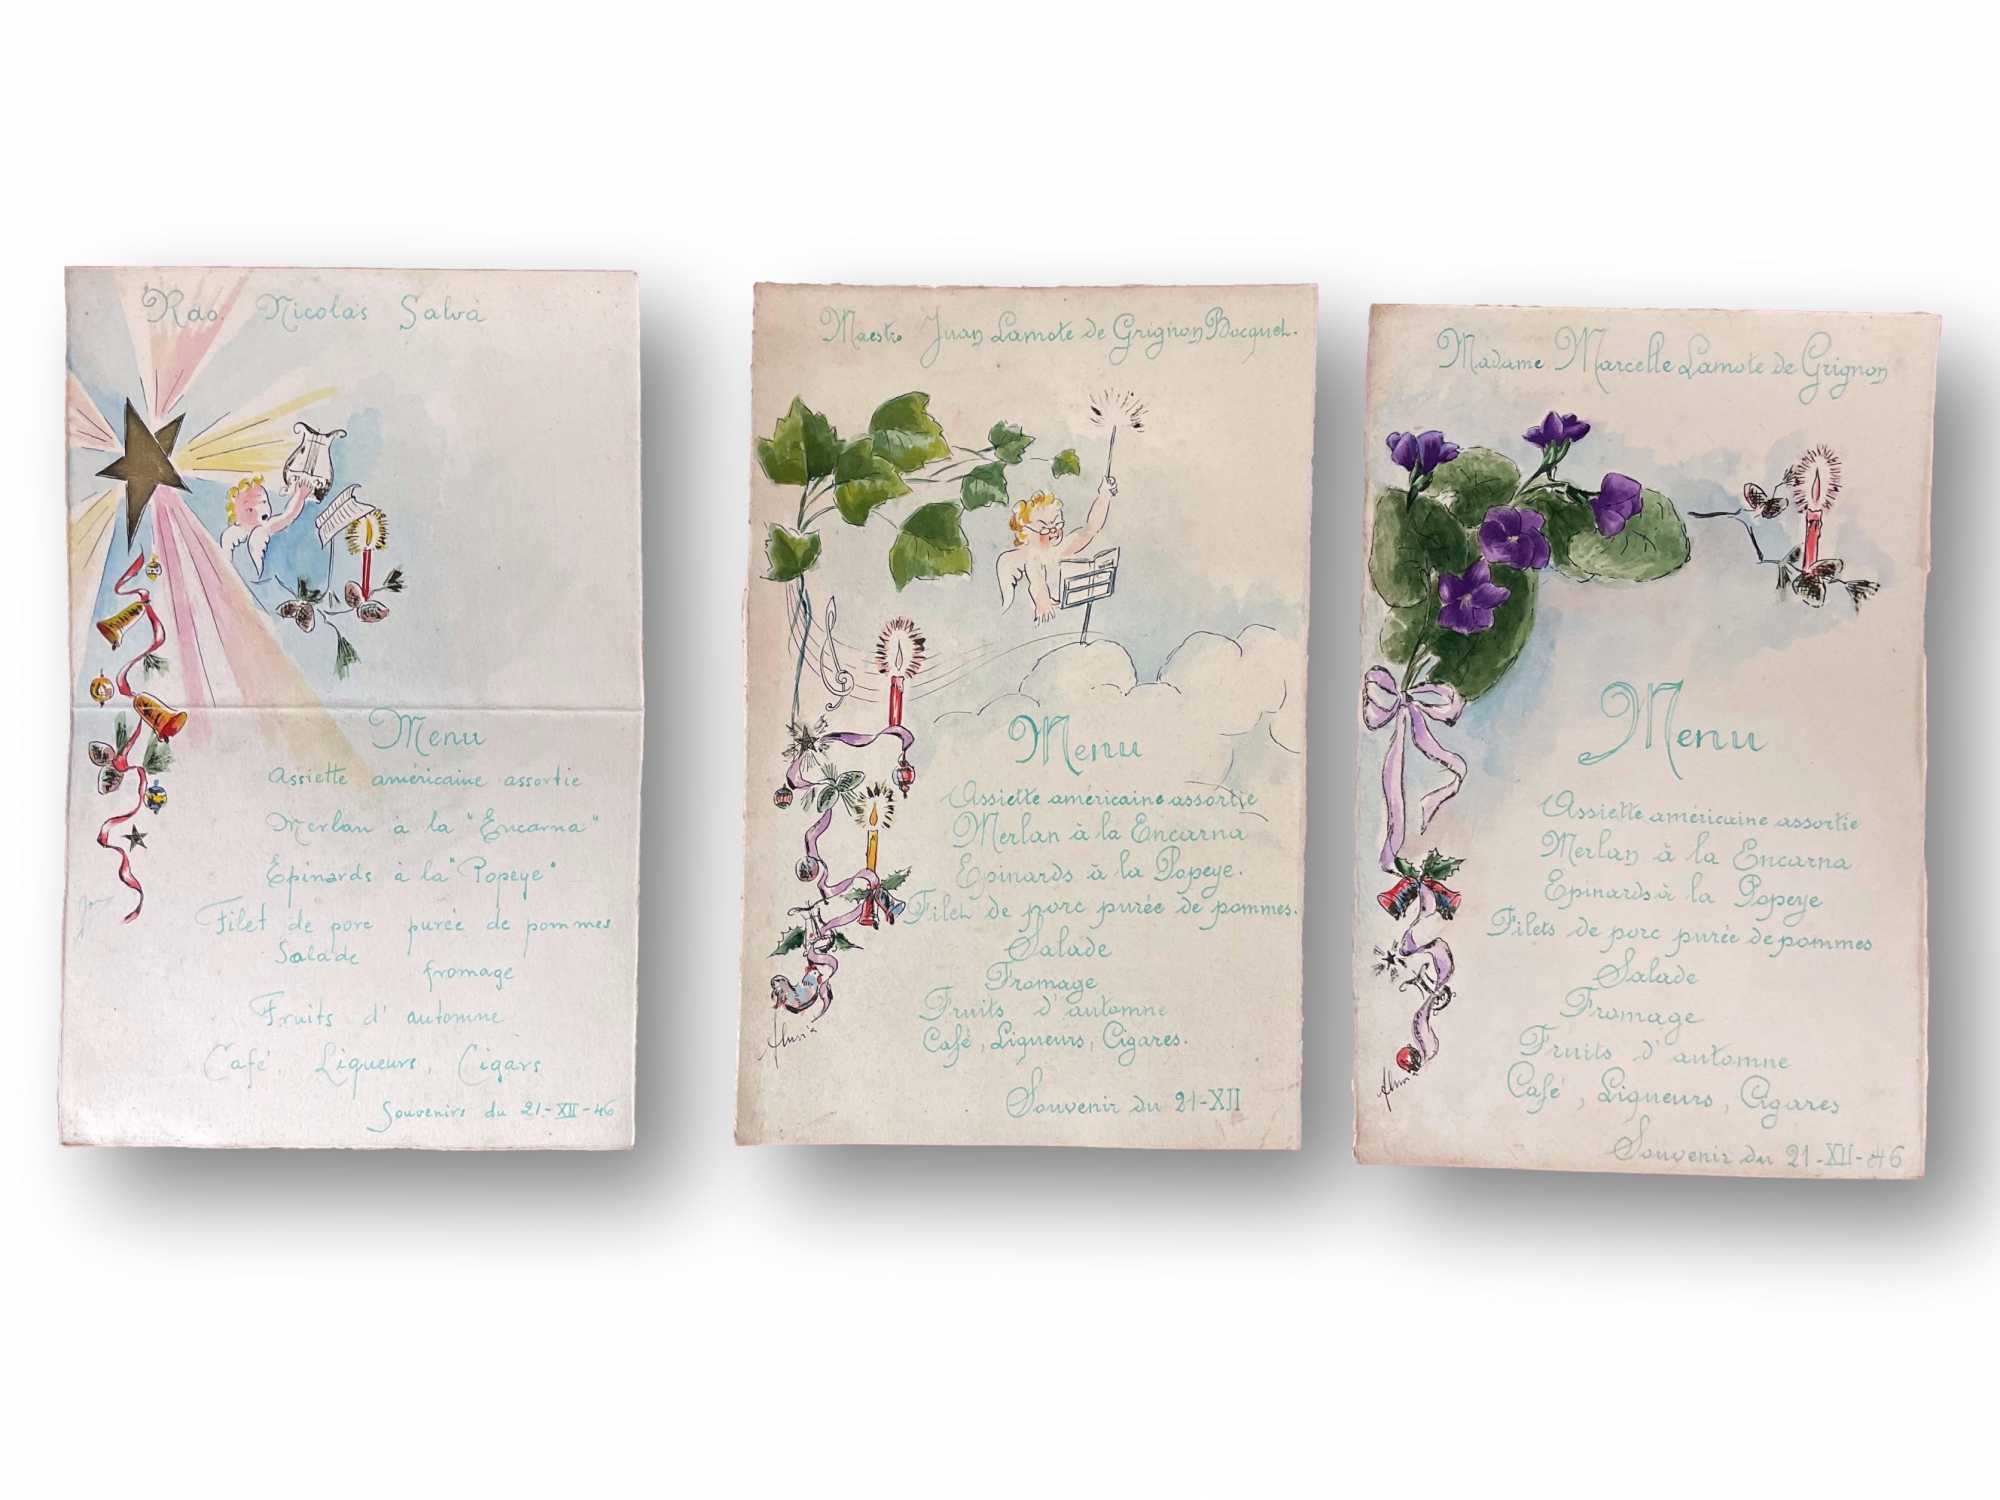 Rdo. Nicolás Salvá
Menu
Assiette américaine assortie
Merlan à la "Encarna"
Epinards à la "Popeye"
Filet de porc purée de pommes
Salade
fromage
Fruits d'automne
Café, Liqueurs, Cigars
Souvenirs du 21-XII-46
Maestro Juan Lamote de Grignon Bocquet.
Menu
Assiette américaine assortie
Merlan à la Encarna
Epinards à la Popeye.
Filet de porc purée de pommes.
Salade
Fromage
Fruits d'automne
Café, Liqueurs, Cigares.
Souvenir du 21-XII
Madame Marcelle Lamote de Grignon
Menu
Assiette américaine assortie
Merlan à la Encarna
Epinards à la Popeye
Filets de porc purée de pommes
Salade
Fromage
Fruits d'automne
Café, Liqueurs, Cigares
Souvenir du 21-XII-46